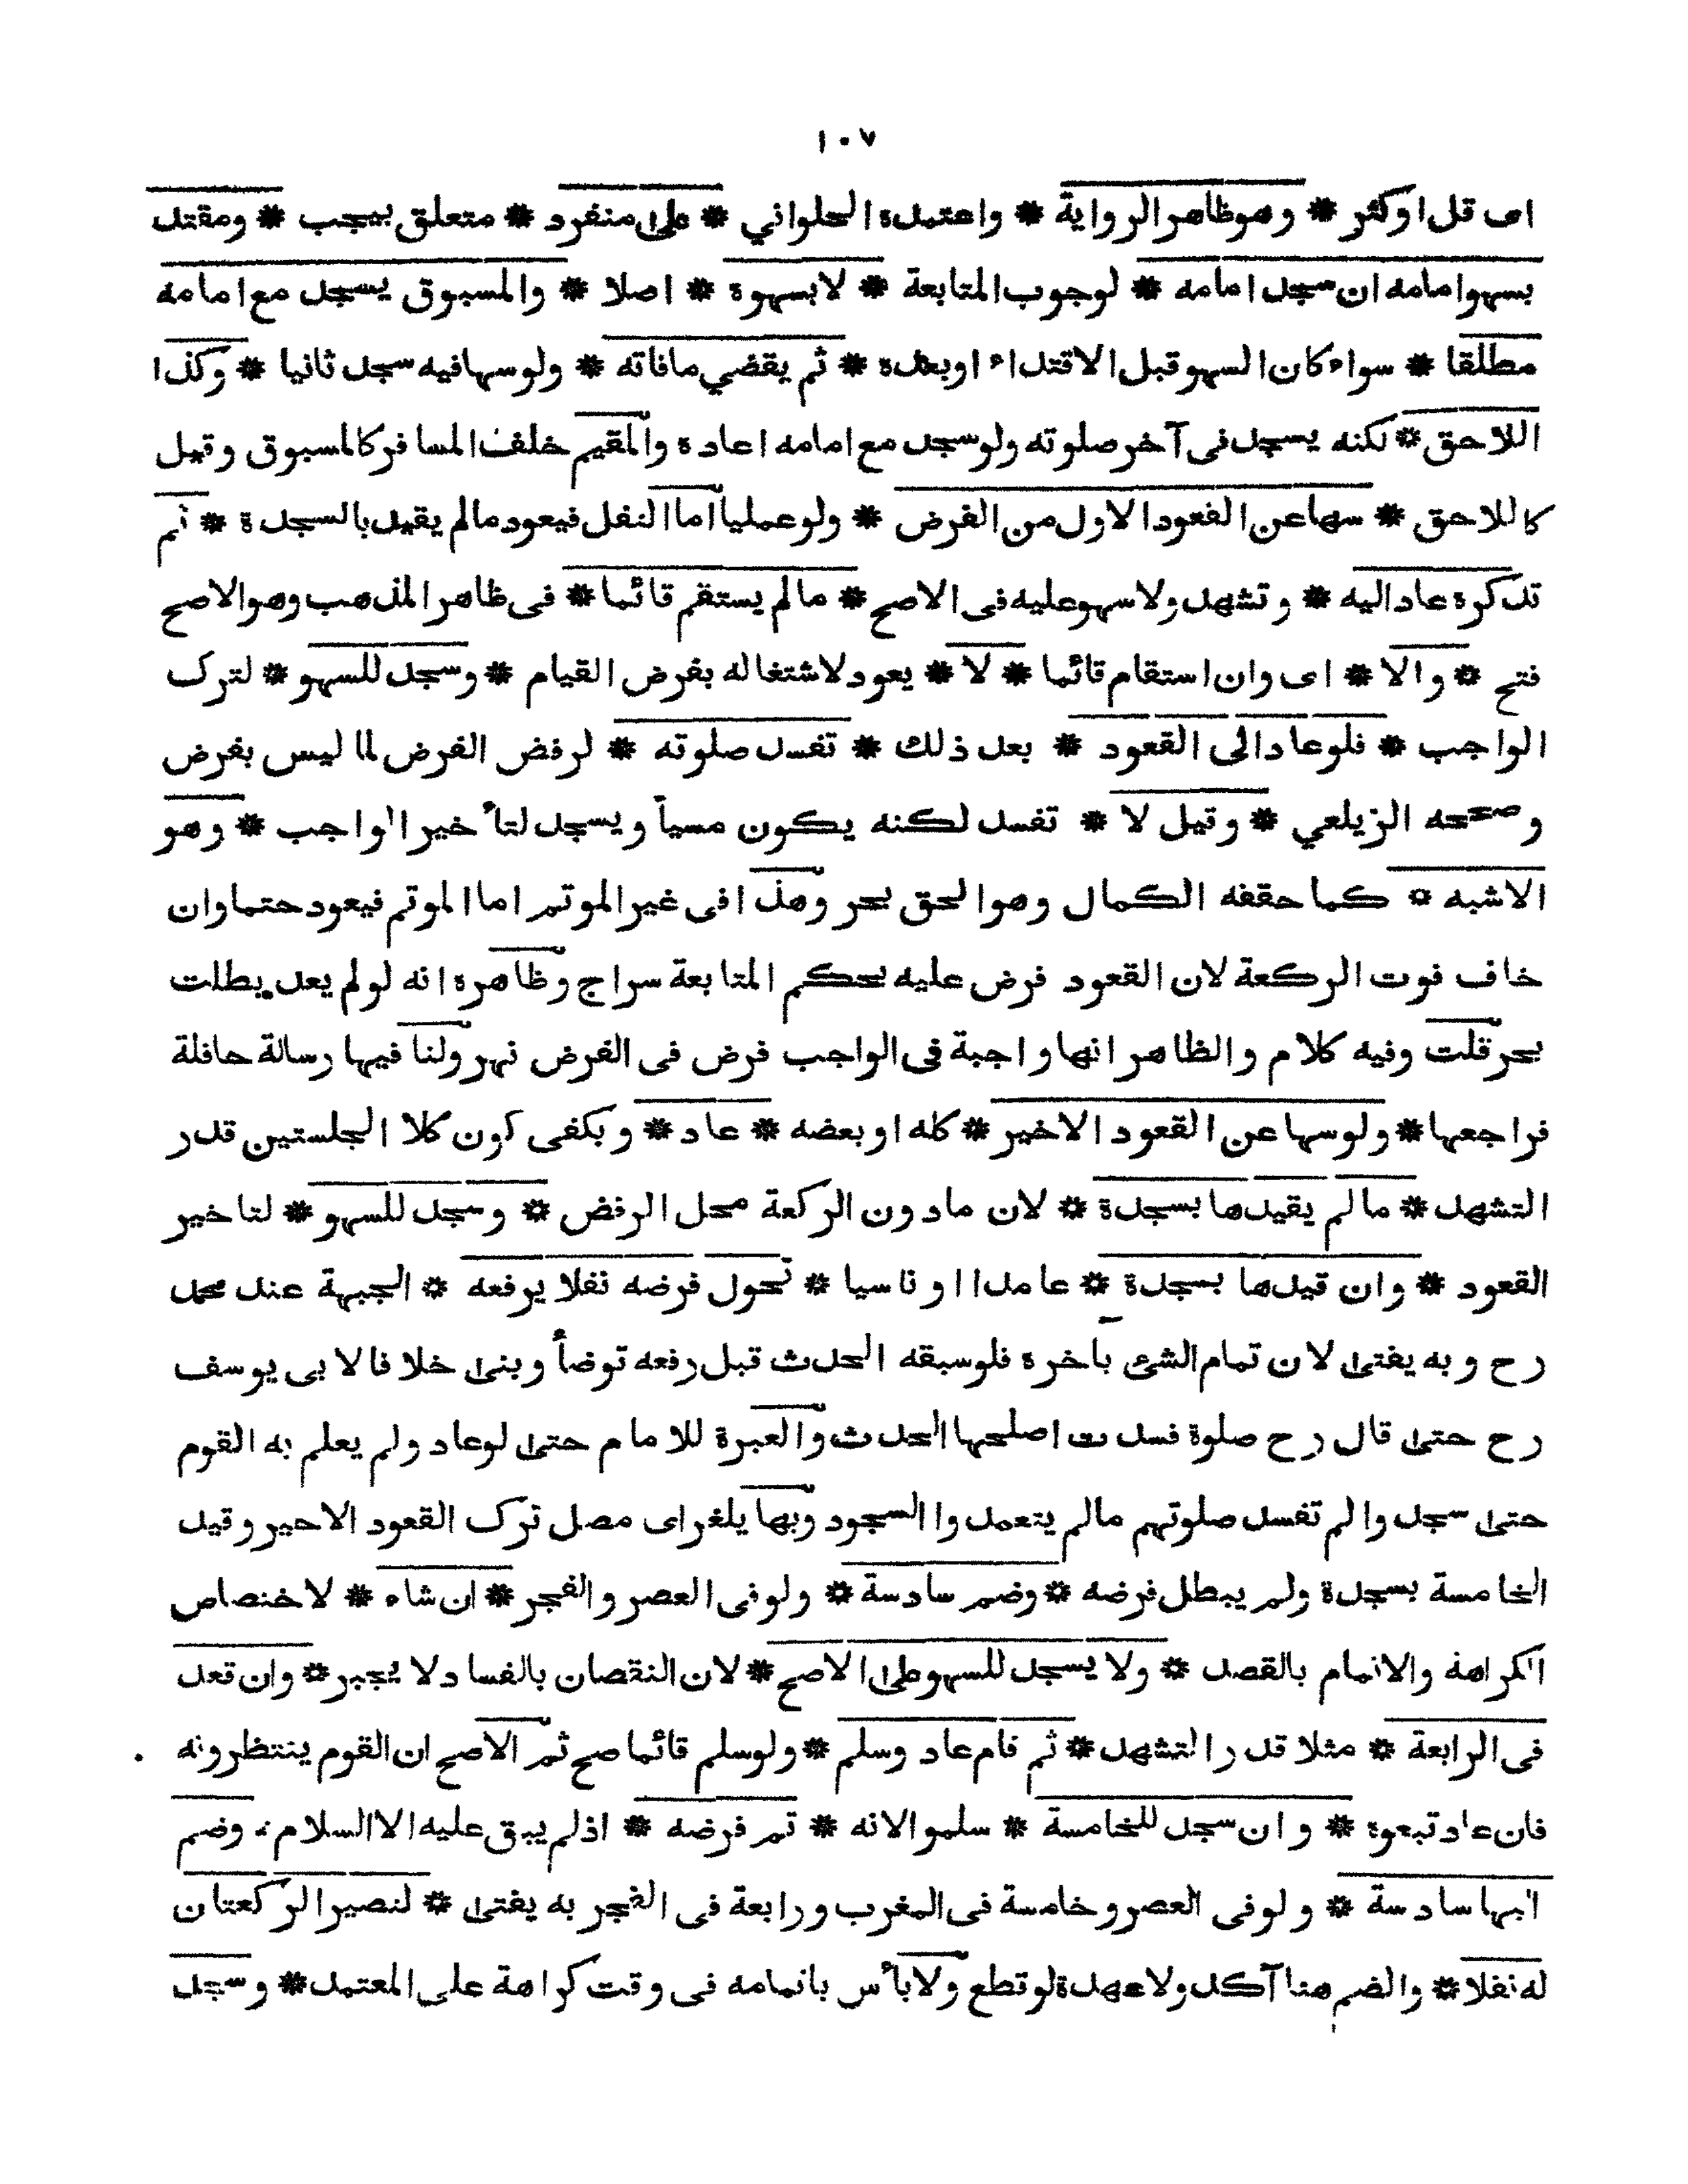 ١٠٧
اى قل اوكثر * وهوظاهرالرواية * واعتمدة الحلواني * على منفرد * متعلق بيجب * ومقتد
بسهوامامه ان سجد امامه * لوجوب المتابعة * لابسهوة * اصلا * والمسبوق يسجد مع امامه
مطلقا * سواء كان السهوقبل الاقتداء اوبعدة * ثم يقضي مافاته * ولوسهافيه سجد ثانيا * وكذا
اللاحق * لكنه يسجد فى آخرصلوته ولوسجد مع امامه اعادة والمقيم خلف المسافركالمسبوق وقيل
كاللاحق * سهاعن القعود الاول من الفرض * ولوعملياً اما النفل فيعود مالم يقيد بالسجدة * ثم
تذكرة عاد اليه * وتشهد ولاسهوعليه فى الاصح * مالم يستقم قائما * فى ظاهرالمذهب وهوالاصح
فتح * والا * اى وان استقام قائما * لا * يعود لاشتغاله بفرض القيام * وسجد للسهو * لترك
الواجب * فلوعاد الى القعود * بعد ذلك * تفسد صلوته * لرفض الفرض لما ليس بفرض
وصححه الزيلعي * وقيل لا * تفسد لكنه يكون مسياً ويسجد لتأخيرالواجب * وهو
الاشبه * كما حققه الكمال وهوالحق بحر وهذا فى غيرالموتم اما الموتم فيعود حتما وان
خاف فوت الركعة لان القعود فرض عليه بحكم المتابعة سراج وظاهرة انه لولم يعد بطلت
بحر قلت وفيه كلام والظاهر انها واجبة فى الواجب فرض فى الفرض نهر ولنا فيها رسالة حافلة
فراجعها * ولوسها عن القعود الاخير * كله اوبعضه * عاد * ويكفى كون كلا الجلستين قدر
التشهد * مالم يقيدها بسجدة * لان مادون الركعة محل الرفض * وسجد للسهو * لتاخير
القعود * وان قيدها بسجدة * عامدا اوناسيا * تحول فرضه نفلا يرفعه * الجبهة عند محمد
رح وبه يفتى لان تمام الشئ بآخرة فلوسبقه الحدث قبل رفعه توضأ وبنى خلافا لابى يوسف
رح حتى قال رح صلوة فسدت اصلحها الحدث والعبرة للامام حتى لوعاد ولم يعلم به القوم
حتى سجد والم تفسد صلوتهم مالم يتعمدوا السجود وبها يلغز اى مصل ترك القعود الاحير وقيد
الخامسة بسجدة ولم يبطل فرضه * وضم سادسة * ولوفى العصر والفجر * ان شاء * لاختصاص
الكراهة والاتمام بالقصد * ولا يسجد للسهوعلى الاصح * لان النقصان بالفساد لا يجبر * وان قعد
فى الرابعة * مثلا قدر التشهد * ثم قام عاد وسلم * ولوسلم قائما صح ثم الاصح ان القوم ينتظرونه
فان عاد تبعوة * وان سجد للخامسة * سلموا لانه * تم فرضه * اذلم يبق عليه الا السلام * وضم
اليها سادسة * ولوفى العصر وخامسة فى المغرب ورابعة فى الفجر به يفتى * لتصير الركعتان
له نفلا * والضم هنا آكد ولا عهدة لوقطع ولابأس باتمامه فى وقت كراهة على المعتمد * وسجد